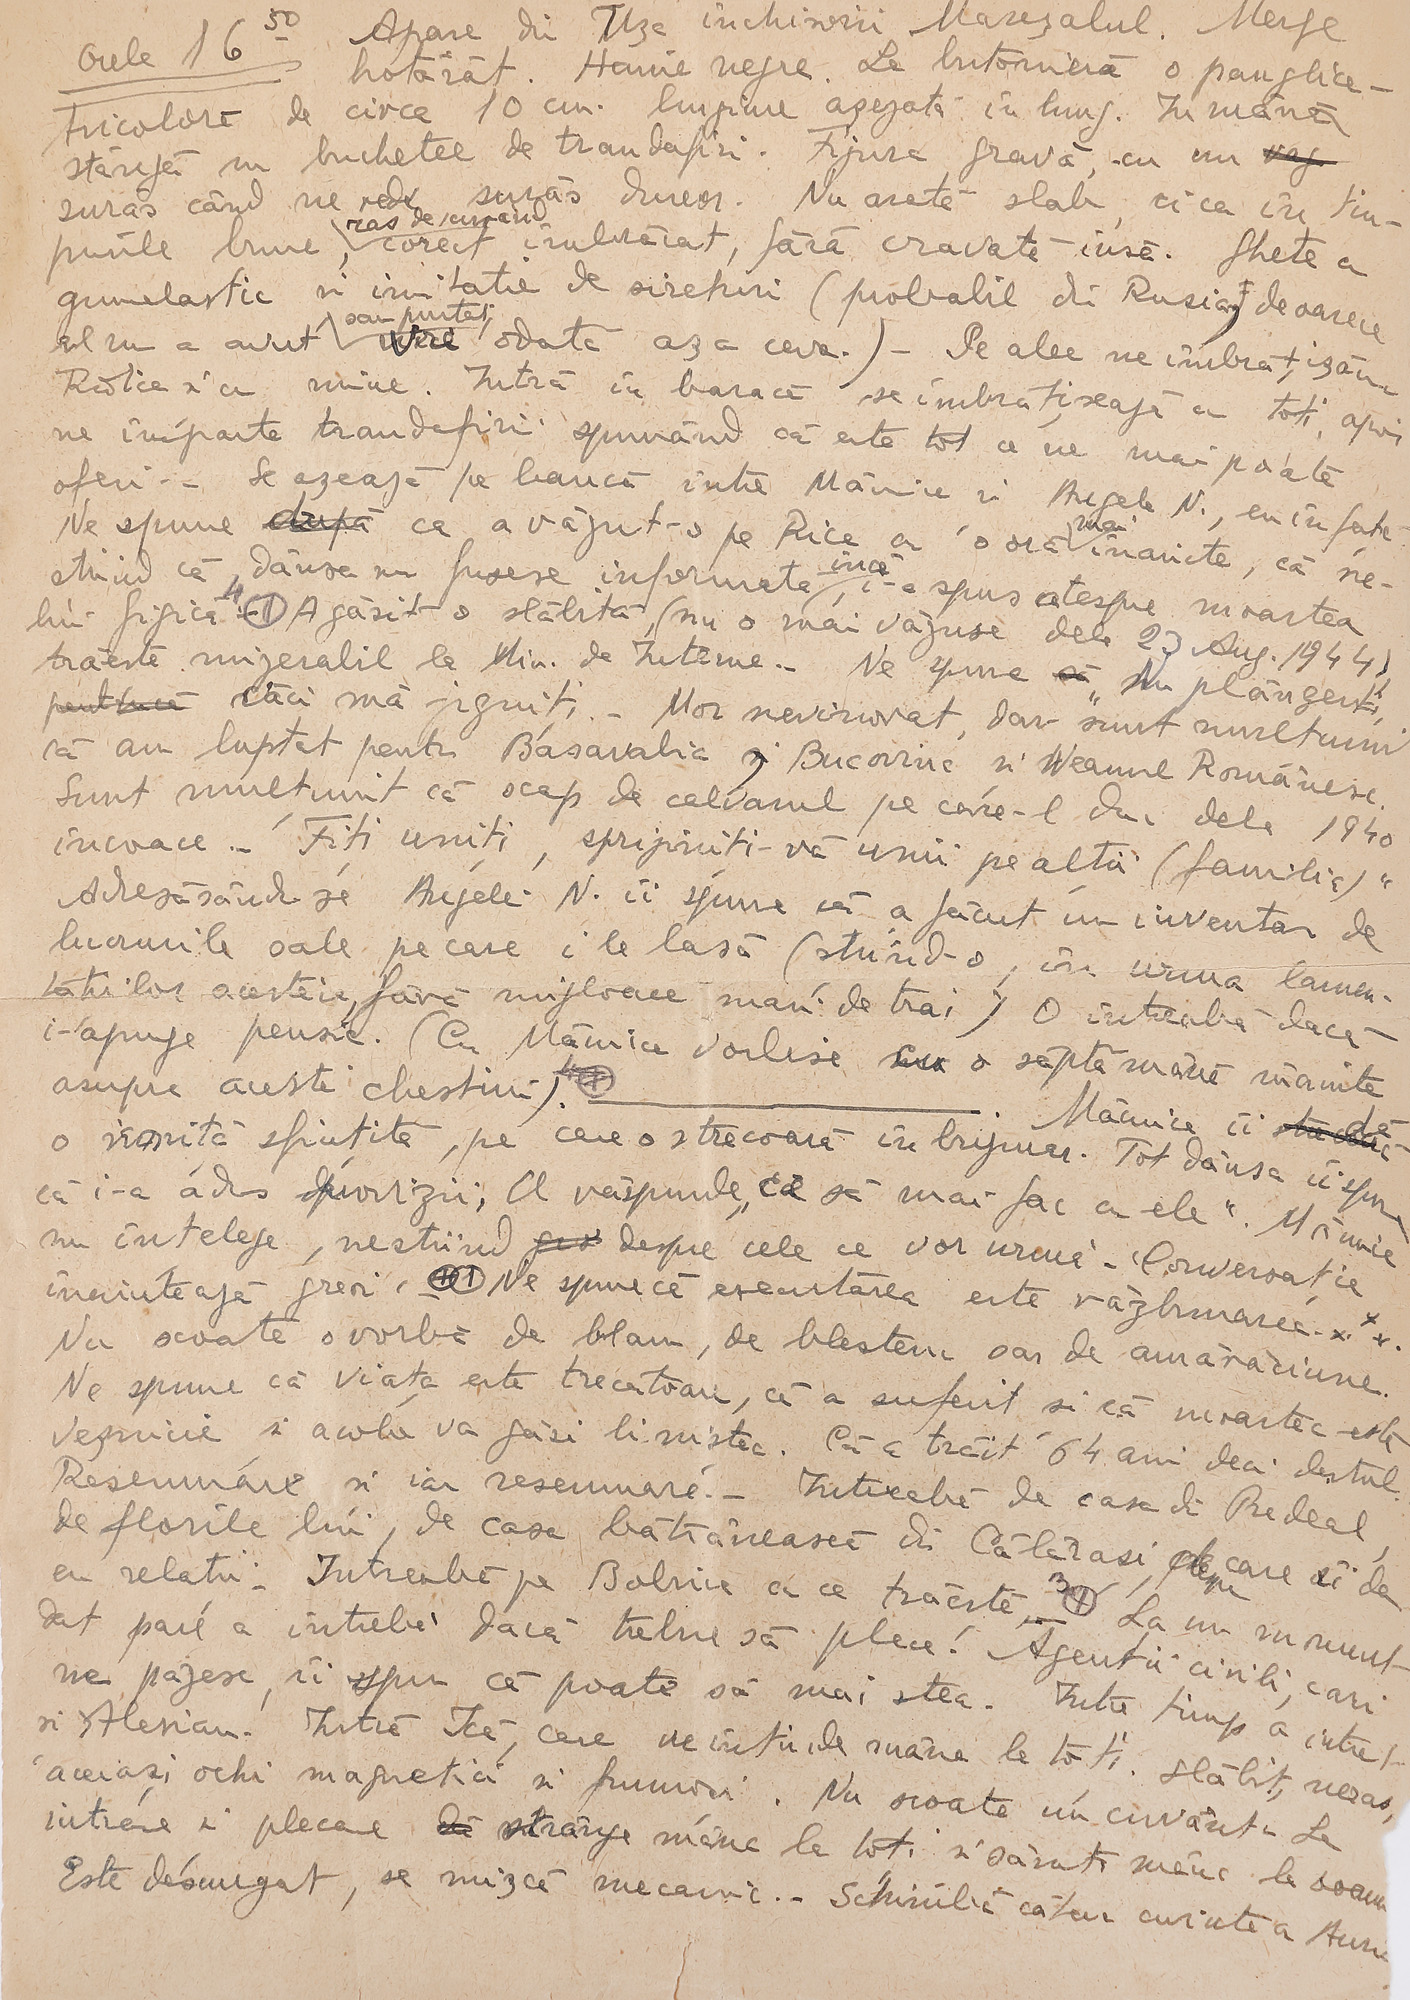 Orele 16 50 Apare din Uşa inchisorii Mareşalul. Merge
hotărât. Haine negre. La butonieră o panglica
tricoloră de circa 10 cm. lungime aşezată în lung. In mână
stângă un buchetel de trandafiri. Figura gravă, cu un
surâs când ne vede, surâs dureros. Nu arată slab, ci ca în tim-
purile bune, ras de curând corect îmbrăcat, fără cravată însă. Ghete cu
gumelastic si imitatie de sireturi (probabil din Rusia, deoarece
el nu a avut sau purtat vre odata aşa ceva.) - Pe alee ne îmbrătisăm
Rodica si cu mine. Intră în baracă se îmbrăţişează cu toti, apoi
ne împarte trandafirii spunând că este tot ce ne mai poate
oferi. - Se aşează pe bancă intre Mămica si Angela N., eu în fată.
Ne spune după ce a văzut-o pe Rica cu o oră mai înainte, că ne-
stiind că dânsa nu fusese informata încă, i-a spus despre moartea
lui Gigica. A găsit-o slăbită, (nu o mai văzuse dela 23 Aug. 1944)
trăeste mizerabil la Min. de Interne. - Ne spune să „Nu plângeti,
pentrucă căci mă jigniti. - Mor nevinovat, dar sunt multumit
că am luptat pentru Basarabia şi Bucovina si Neamul Românesc.
Sunt multumit că scap de calvarul pe care-l duc dela 1940
incoace. - Fiti uniti, sprijiniti-vă unii pe altii (familia)"
Adresându-se Angelei N. ii spune că a făcut un inventar de
lucrurile sale pe care i le lasă (stiind-o, în urma lamen-
tatiilor acesteia, fără mijloace mari de trai) O intreabă dacă
i-ajunge pensia. (Cu Mămica vorbise cu o săptămână înainte
asupra acestei chestiuni). Mămica îi dă
o iconită sfintită, pe care o strecoară în buzunar. Tot dânsa ii spune
că i-a adus provizii; El răspunde „ce să mai fac cu ele". Mămica
nu întelege, nestiind despre cele ce vor urma - Conversatia
înaintează greoi. Ne spune că executarea este răzbunarea...
Nu scoate o vorbă de blam, de blestem sau de amărăciune.
Ne spune că viata este trecătoare, că a suferit si că moartea este
veşnicie si acolo va găsi linistea. Că a trăit 64 ani deci destul.
Resemnare si iar resemnare. - Intreabă de casa din Predeal,
de florile lui, de casa bătrânească din Călărasi, despre care îi dă
eu relatii. Intreabă pe Bobrica cu ce trăeste. 3 La un moment
dat pare a intreba dacă trebue să plece. Agentii civili, cari
ne păzesc, ii spun că poate să mai stea. Intre timp a intrat
si Alexianu. Intră Ică, care ne întinde mâna la toti. Slăbit, neras,
aceiasi ochi magnetici si frumosi. Nu scoate un cuvânt. La
intrare si plecare strânge mâna la toti si sărută mâna la doamne
Este desmegat, se mişcă mecanic. - Schimbă câteva cuvinte cu